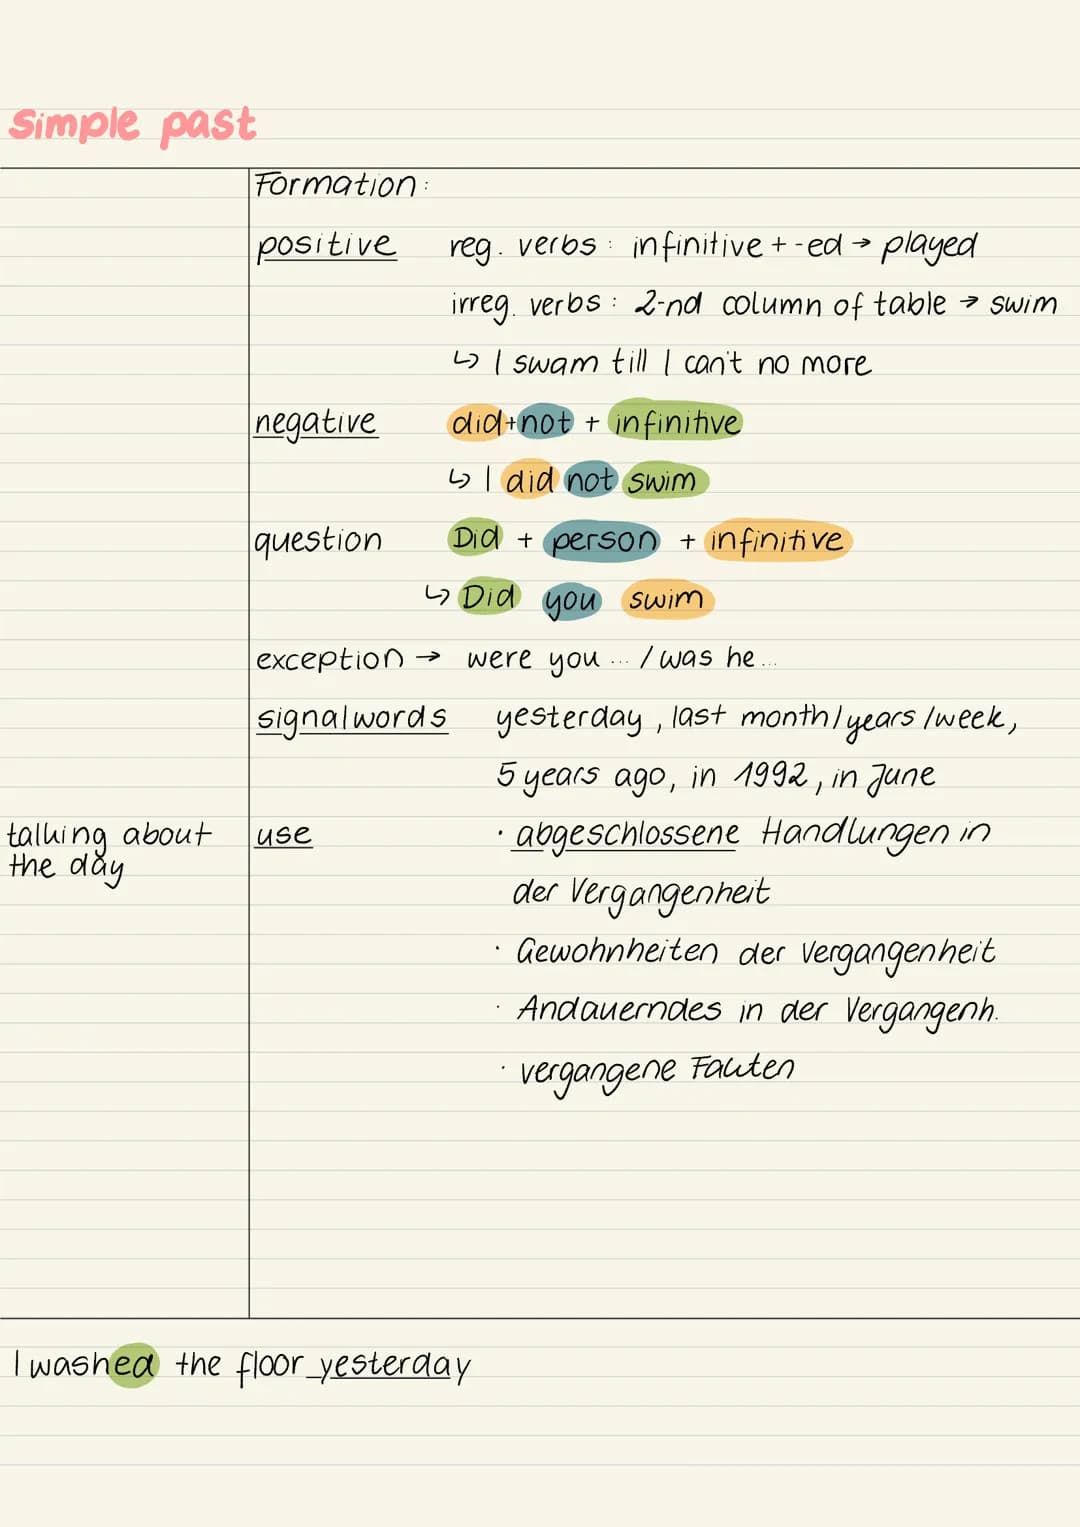 simple past
Formation:
positive reg. verbs: infinitive + -ed → played
irreg. verbs: 2-nd column of table → swim
↳ I swam till I can't no more
negative did+not + infinitive
↳ I did not swim
question Did + person + infinitive
↳ Did you swim
exception → were you ... / was he ...
signalwords yesterday, last month/years/week,
5 years ago, in 1992, in June
talking about use · abgeschlossene Handlungen in
the day
der Vergangenheit
· Gewohnheiten der Vergangenheit
· Andauerndes in der Vergangenh.
· vergangene Fakten
I washed the floor yesterday